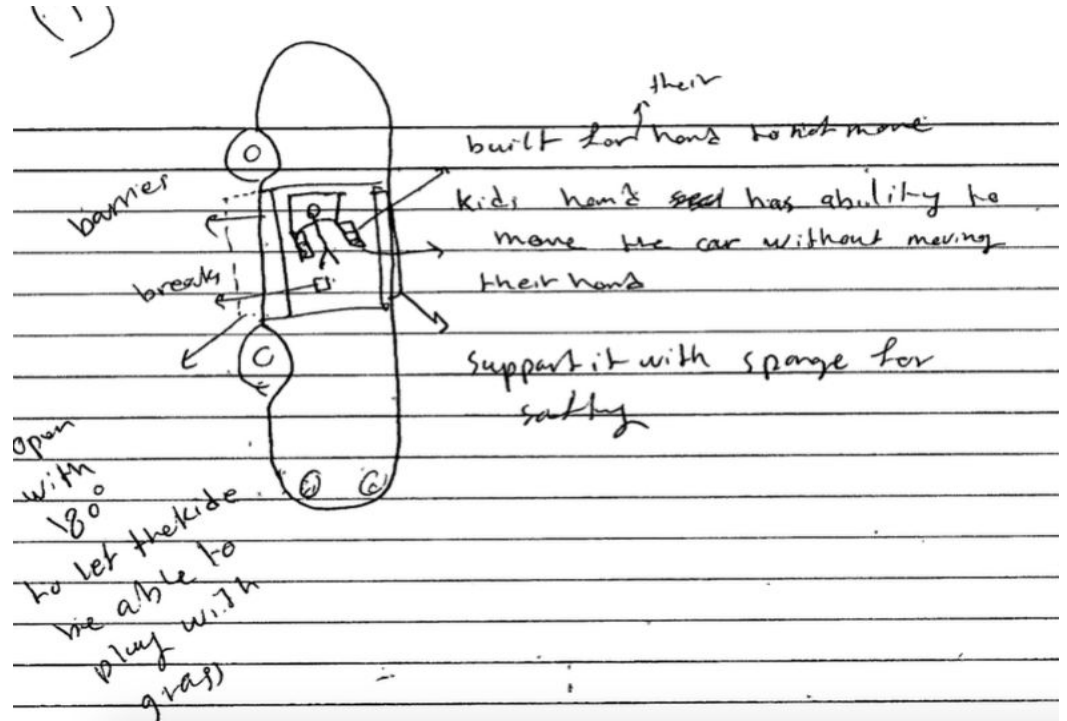 (1)
their
built for hand to not move
kids hand has ability to
move the car without moving
their hand
support it with sponge for
barrier
breaks
open
with
180°
to let the kids
be able to
play with
grass